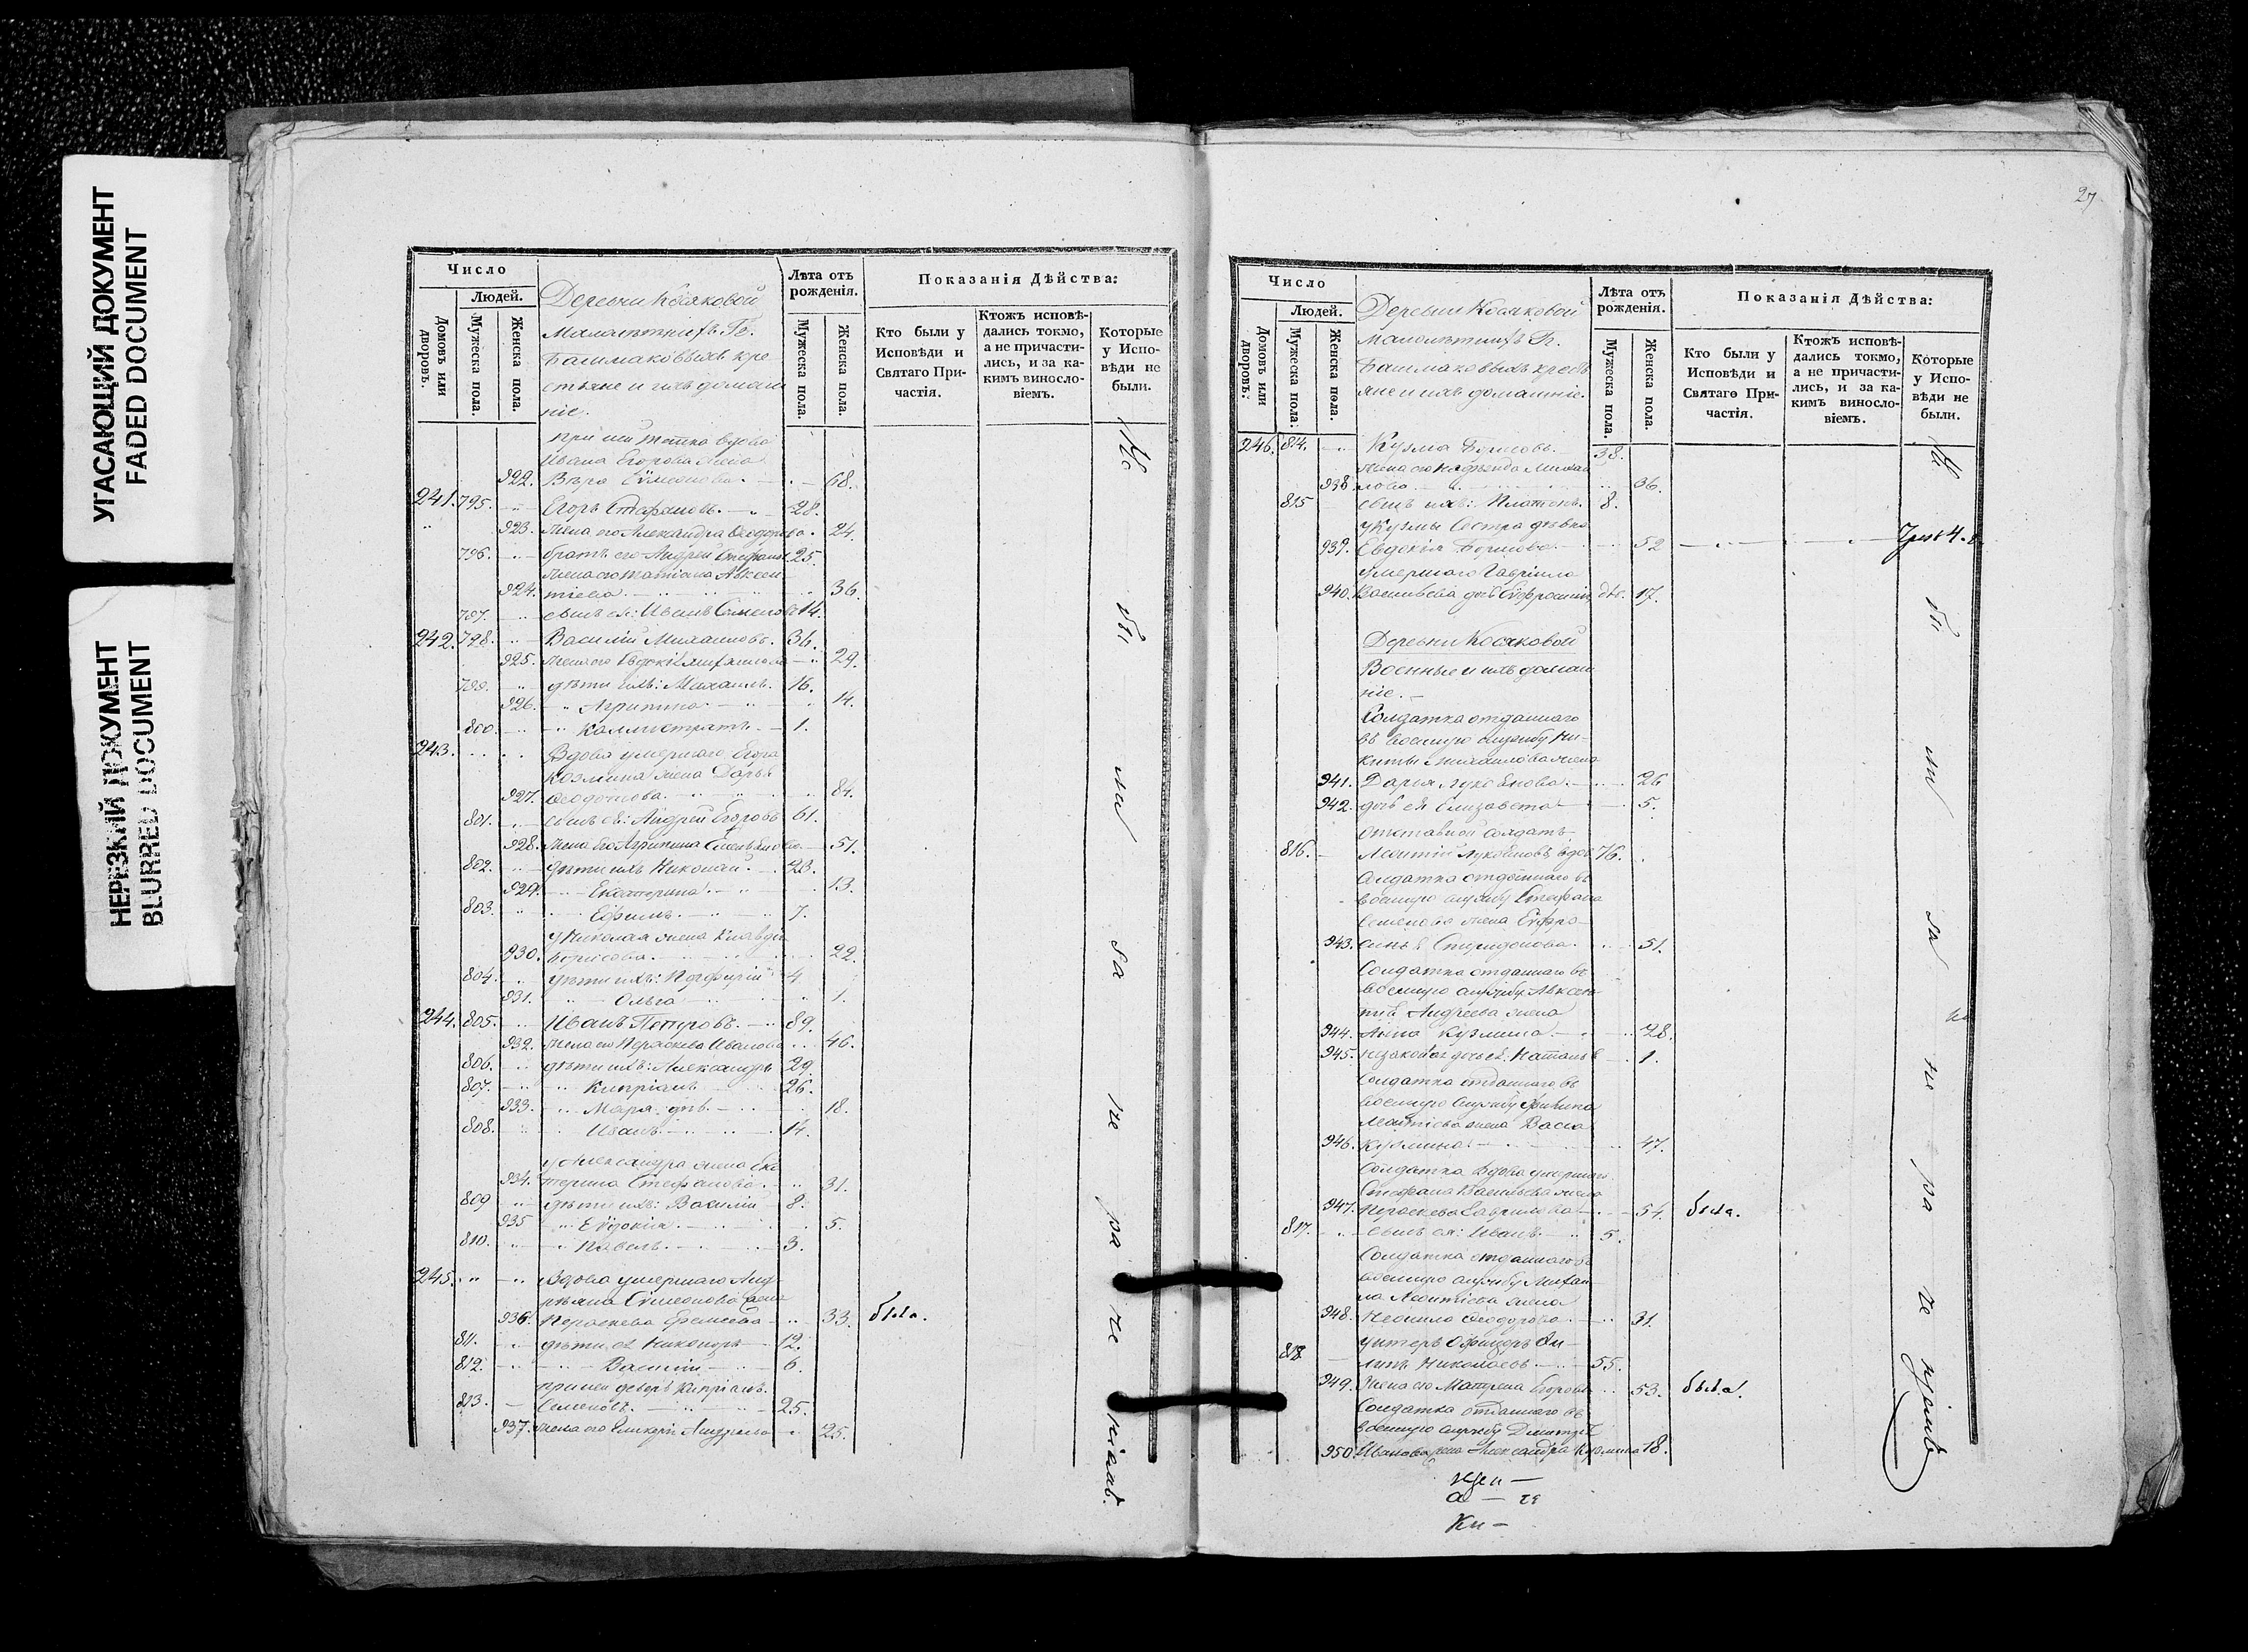 УГАСАЮЩИЙ ДОКУМЕНТ
FADED DOCUMENT
НЕРЕЗКИЙ ДОКУМЕНТ
BLURRED DOCUMENT
Число
Людей.
Домовъ или дворовъ.
Мужеска пола.
Женска пола.
Деревни Косяковой
Малолѣтнихъ Гг.
Башмаковыхъ кре
стьяне и ихъ домаш
ніе.
Лѣта отъ рожденія.
Мужеска пола.
Женска пола.
Показанія Дѣйства:
Кто были у Исповѣди и Святаго При-частія.
Ктожъ исповѣ-дались токмо, а не причасти-лись, и за ка-кимъ винosло-віемъ.
Которые у Испо-вѣди не были.
при ней тетка вдова
Ивана Егорова жена
922. Вѣра Симеонова. 68.
241. 795. Егоръ Стефановъ. 28.
923. жена его Александра Ѳеодорова. 24.
796. братъ его Андрей Стефановъ 25.
жена его Татіана Авксен
924. тіева 36.
797. сынъ ея: Иванъ Семеновъ 14.
242. 798. Василій Михаиловъ. 36.
925. жена его Евдокія 29.
799. дѣти ихъ: Михаилъ. 16.
926. Агрипина 14.
800. Каллистратъ. 1.
243. Вдова умершаго Егора
Козмина жена Дарья
927. Ѳеодотова. 84.
801. сынъ ея: Андрей Егоровъ 61.
928. жена его Агрипина Емельянова 51.
802. дѣти ихъ Николай. 23.
929. Екатерина 13.
803. Ефимъ. 7.
у Николая жена Клавдія
930. Борисова. 22.
804. дѣти ихъ: Порфирій 4
931. Ольга 1.
244. 805. Иванъ Петровъ. 89.
932. жена его Параскева Иванова 46.
806. дѣти ихъ: Александръ 29.
807. Кипріанъ 26.
933. Марья дѣв. 18.
808. Иванъ. 14.
у Александра жена Ека
934. терина Стефанова. 31.
809 дѣти ихъ: Василій 8.
935 Евдокія. 5.
810. Павелъ. 3.
245. Вдова умершаго Анд
реяна Симеонова жена
936. Параскева Еремѣева 33. была.
811. дѣти ея Никоноръ 12.
812. Василій 6.
при ней деверь Кипріанъ
813. Семеновъ. 25.
937. жена его Гликерія Андреева 25.
27
Число
Людей.
Домовъ или дворовъ.
Мужеска пола.
Женска пола.
Деревни Косяковой
Малолѣтнихъ Гг.
Башмаковыхъ кресть
яне и ихъ домашніе.
Лѣта отъ рожденія.
Мужеска пола.
Женска пола.
Показанія Дѣйства:
Кто были у Исповѣди и Святаго При-частія.
Ктожъ исповѣ-дались токмо, а не причасти-лись, и за ка-кимъ винosло-віемъ.
Которые у Испо-вѣди не были.
246. 814. Кузма Борисовъ. 38.
жена его Надежда Михаи
938. лова 36.
815 сынъ ихъ: Платонъ. 8.
у Кузмы сестра дѣвка
939. Евдокія Борисова 52
умершаго Гавріила
940. Васильева дочь Евфросинія дѣв. 17.
Деревни Косяковой
Военные и ихъ домаш
ніе.
Солдатка отданнаго
въ военную службу Ни-
киты Михаилова жена
941. Дарья Лукоянова. 26
942. дочь ея Елизавета 5.
Отставной солдатъ
816. Леонтій Лукояновъ вдов. 76.
Солдатка отданнаго въ
военную службу Стефана
Семенова жена Евфро-
943. синья Спиридонова. 51.
Солдатка отданнаго въ
военную службу Авксен
тія Андреева жена
944. Анна Кузмина 28.
945. незакон. дочь ея Наталья 1.
Солдатка отданнаго въ
военную службу Филипа
Леонтіева жена Васса
946. Кузмина 47.
Солдатка вдова умершаго
Стефана Васильева жена
947. Параскева Гаврилова 54. была.
817. сынъ ея: Иванъ 5.
Солдатка отданнаго въ
военную службу Михаи
ла Леонтіева жена
948. Неонила Ѳеодорова. 31.
818 Унтеръ Офицеръ Фи-
липъ Николаевъ 55.
949. жена его Матрена Егорова 53. была.
Солдатка отданнаго въ
военную службу Димитрія
950. Иванова жена Александра Кузмина 18.